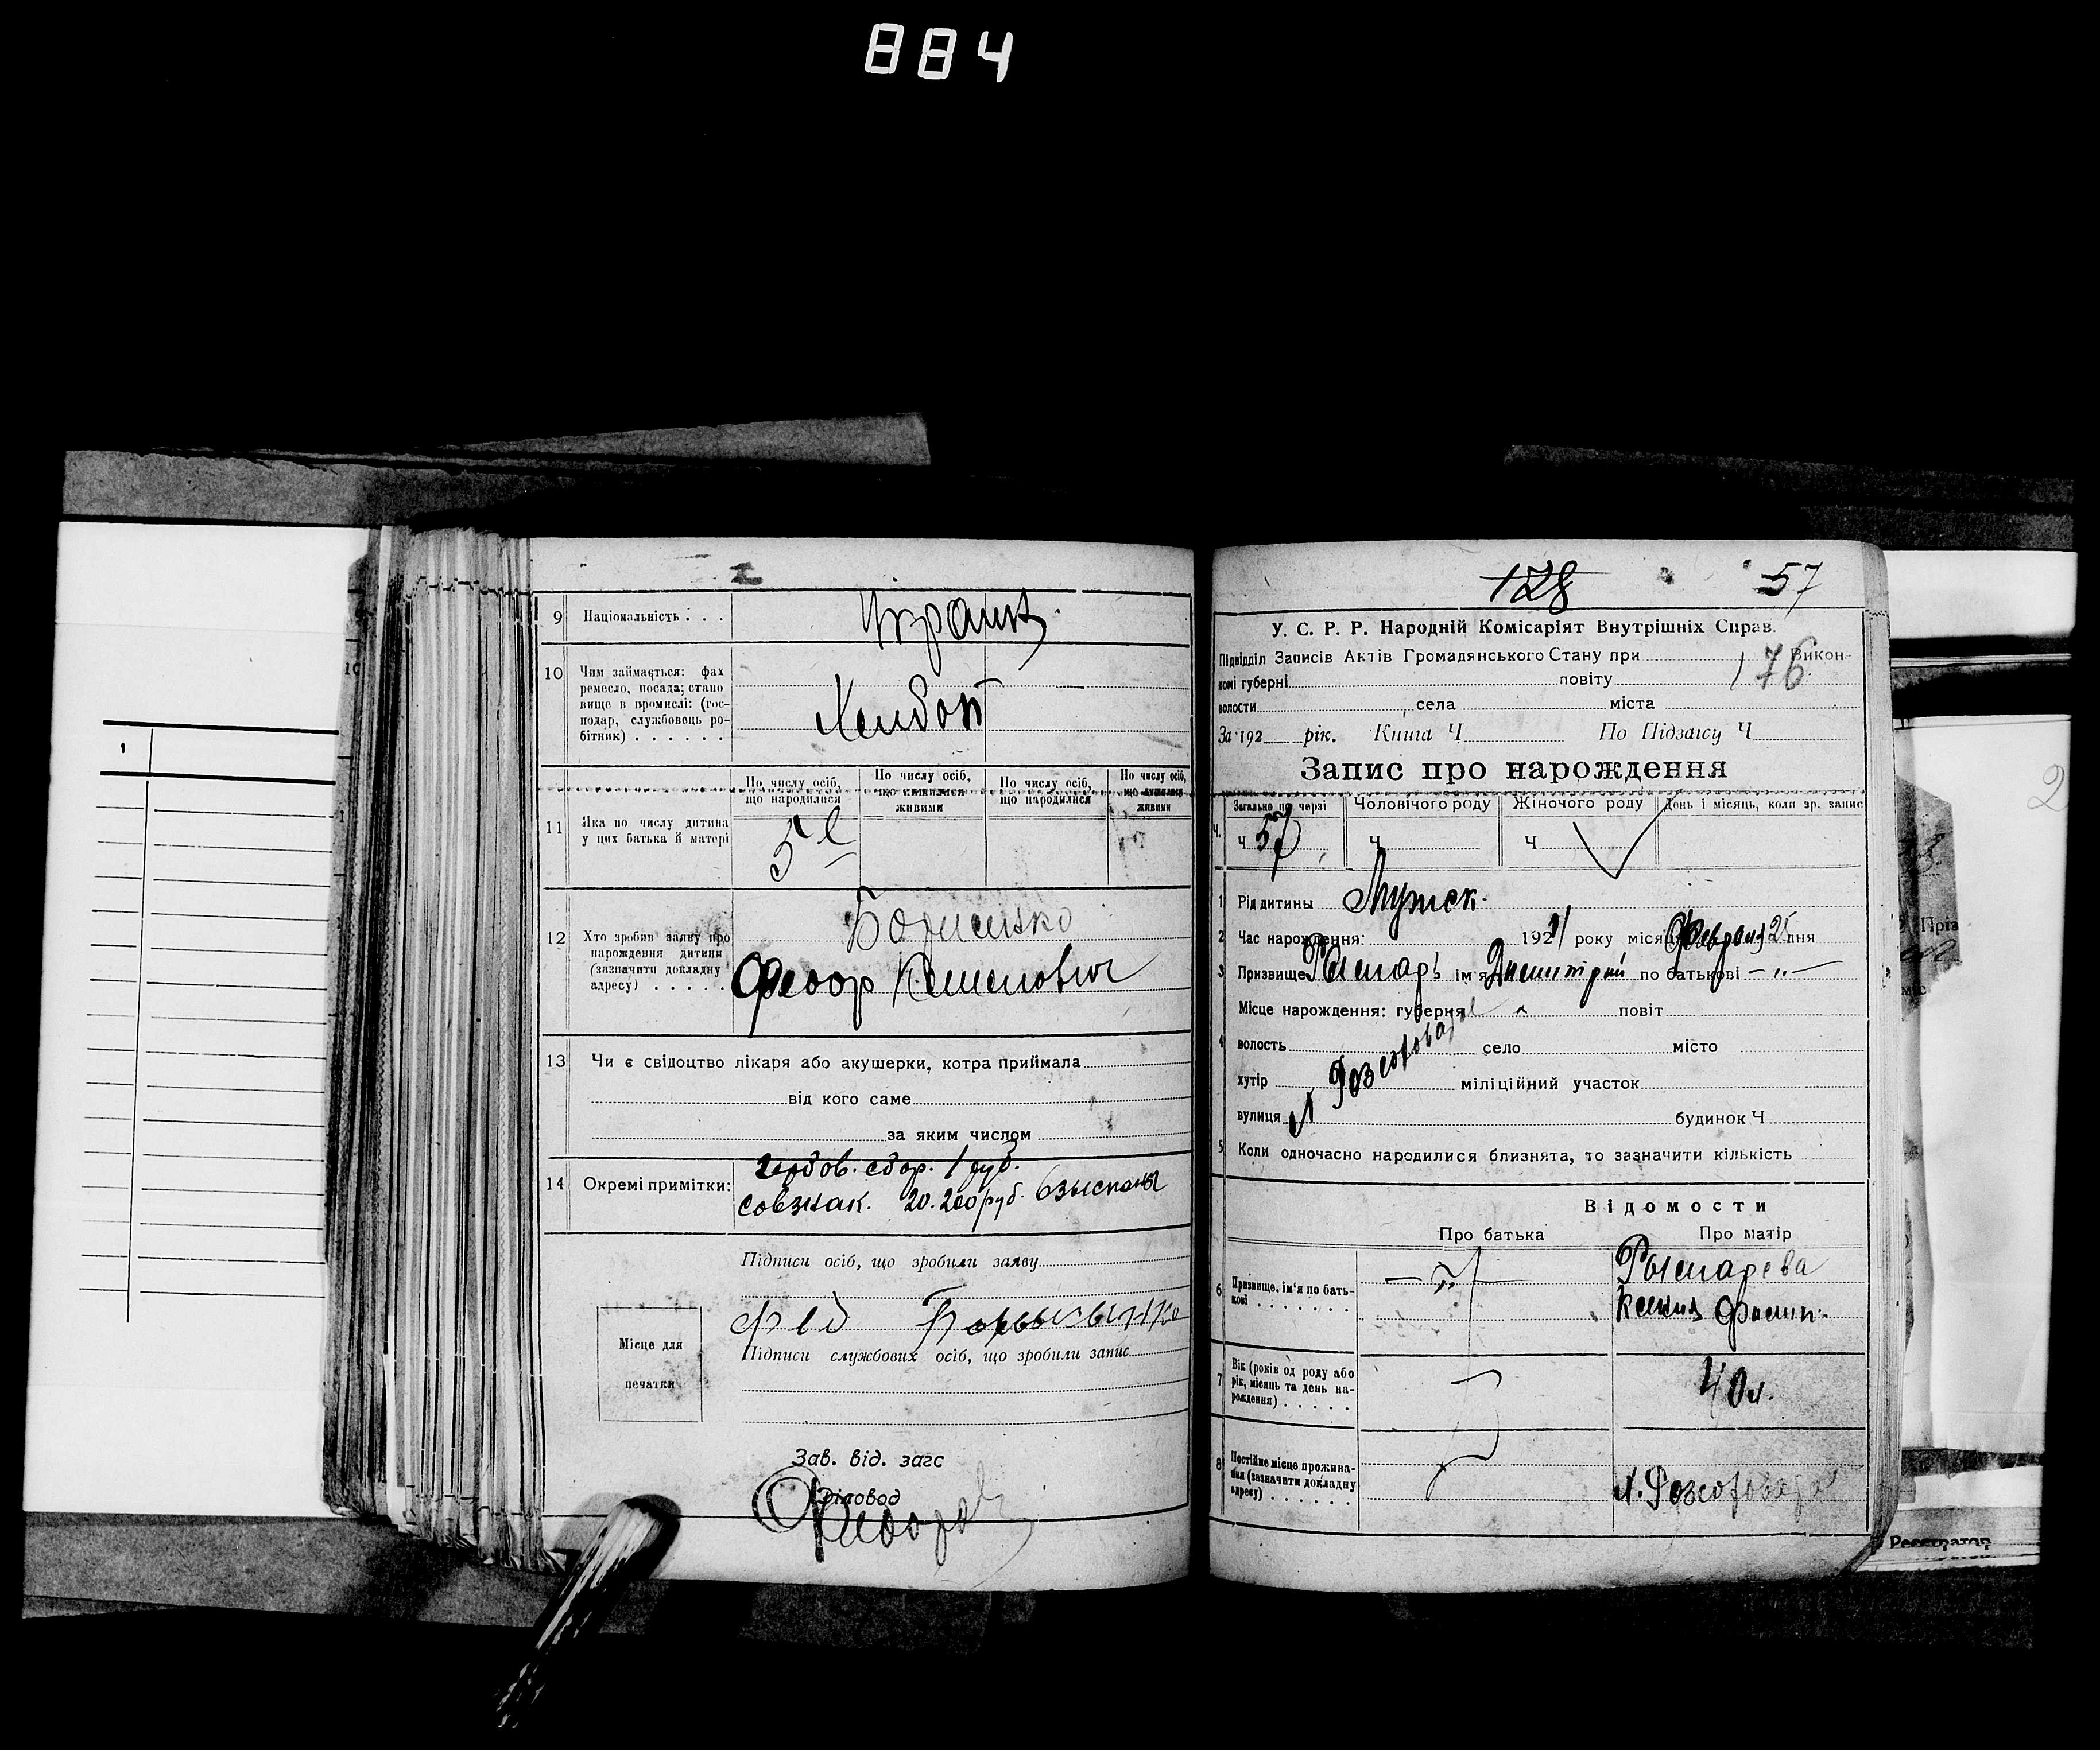 884
9 Національність . . .
Украин.
10 Чим займається: фах
ремесло, посада; стано
вище в промислі: (гос-
подар, службовець ро-
бітник) . . . . . .
Хлебоп
11 Яка по числу дитина
у цих батька й матері
По числу осіб,
що народилися
По числу осіб,
що лишилися
живими
По числу осіб,
що народилися
По числу осіб,
що лишилися
живими
5
12 Хто зробив заяву про
нарождення дитини
(зазначити докладну
адресу) . . . . .
Борисенко
Феодор Семенович
13 Чи є свідоцтво лікаря або акушерки, котра приймала
від кого саме
за яким числом
14 Окремі примітки:
гербов. сбор. 1 руб.
совзнак. 20.200 руб. взысканы
Підписи осіб, що зробили заяву
Фед
Підписи службових осіб, що зробили запис
Місце для
печатки
Зав. від. загс
Діловод
128 57
У. С. Р. Р. Народній Комісаріят Внутрішніх Справ.
Підвідділ Записів Актів Громадянського Стану при Викон-
комі губерні повіту
176
волости села міста
За 192 рік. Книга Ч По Підзагсу Ч
Запис про нарождення
Загально по черзі Чоловічого роду Жіночого роду День і місяць, коли зр. запис
Ч. Ч 57 Ч Ч
1 Рід дитини Мужск.
2 Час нарождення: 1921 року місяця Февраля 25 дня
3 Призвище Рымарь ім'я Дмитрий по батькові — „ —
Місце нарождення: губерня повіт
4 волость село місто
хутір міліційний участок
вулиця будинок Ч
5 Коли одночасно народилися близнята, то зазначити кількість
Відомости
Про батька Про матір
6 Призвище, ім'я по бать-
кові . . . . . . .
Рымарева
Ксения Филип.
7 Вік (років од роду або
рік, місяць та день на-
рождення) . . . . .
40 л.
8 Постійне місце прожива-
ння (зазначити докладну
адресу) . . . . . .
Пріз
Реєстратор